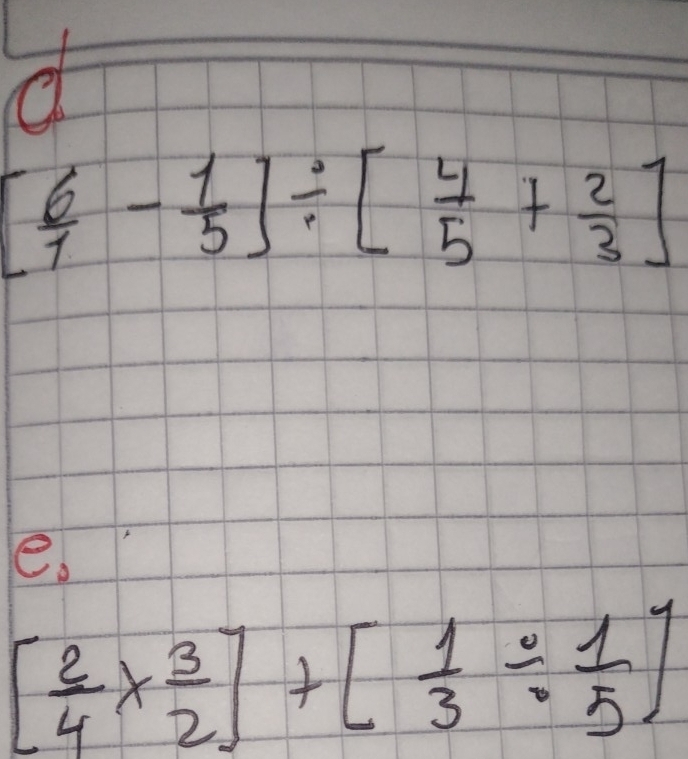 d.
[6/1 - 1/5] ÷ [4/5 + 2/3]
e.
[2/4 × 3/2] + [1/3 ÷ 1/5]